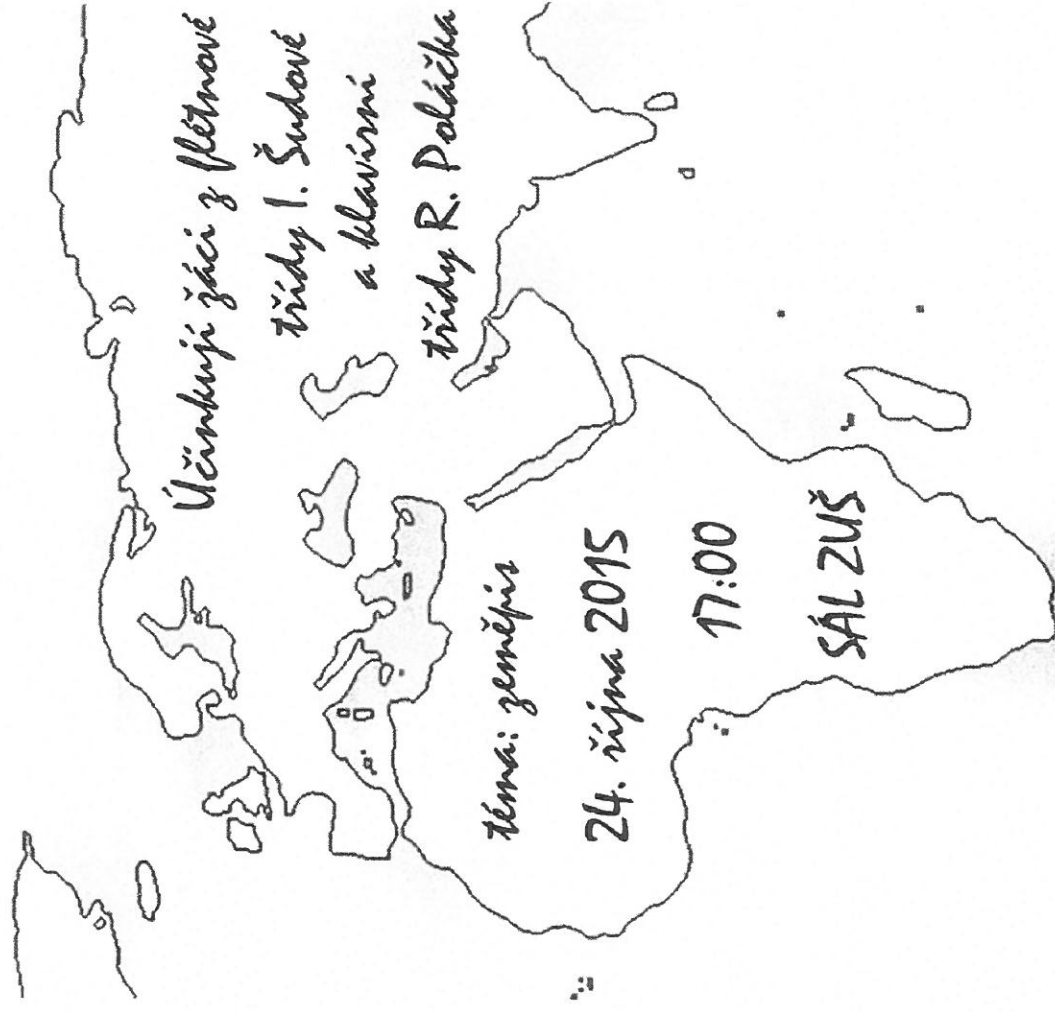 Účinkují žáci z flétnové
třídy I. Šudové
a klavírní
třídy R. Poláčka
téma: zeměpis
24. října 2015
17:00
SÁL ZUŠ